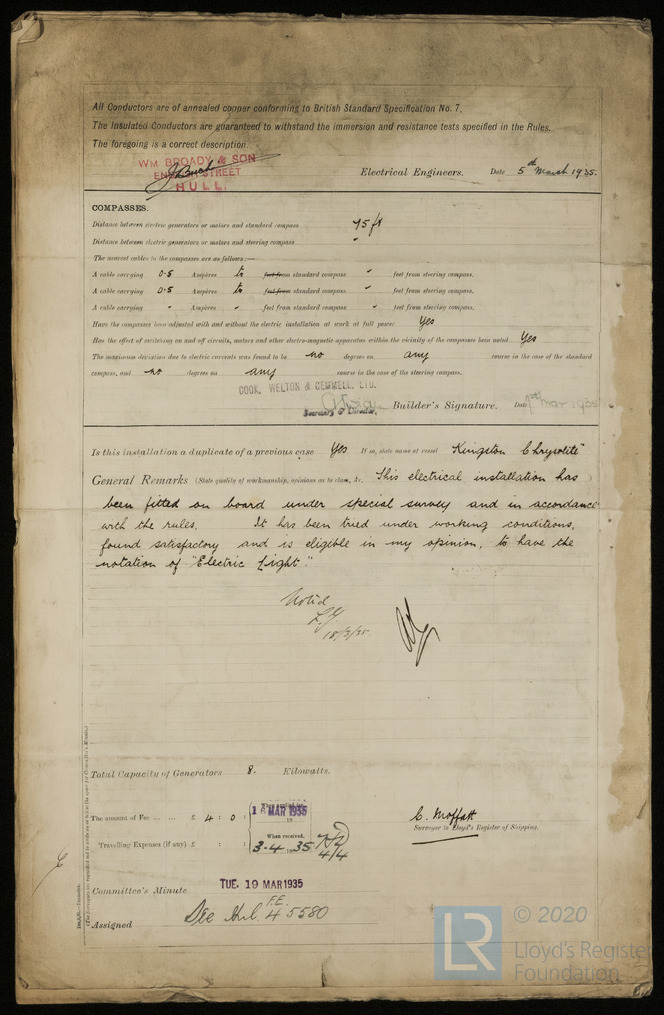 All Conductors are of annealed copper conforming to British Standard Specification No. 7.
The Insulated Conductors are guaranteed to withstand the immersion and resistance tests specified in the Rules.
The foregoing is a correct description.
WM BROADY & SON
STREET
HULL.
Electrical Engineers. Date 5th March 1935.
COMPASSES.
Distance between electric generators or motors and standard compass 75 ft
Distance between electric generators or motors and steering compass "
The nearest cables to the compasses are as follows:—
A cable carrying 0.5 Ampères feet from standard compass " feet from steering compass.
A cable carrying 0.5 Ampères feet from standard compass " feet from steering compass.
A cable carrying " Ampères " feet from standard compass " feet from steering compass.
Have the compasses been adjusted with and without the electric installation at work at full power Yes
Has the effect of switching on and off circuits, motors and other electro-magnetic apparatus within the vicinity of the compasses been noted Yes
The maximum deviation due to electric currents was found to be no degrees on any course in the case of the standard
compass, and no degrees on any course in the case of the steering compass.
COOK, WELTON & GEMMELL, LTD.
Secretary & Director, Builder's Signature. Date Mar 1935
Is this installation a duplicate of a previous case Yes If so, state name of vessel Kingston Chrysolite"
General Remarks (State quality of workmanship, opinions as to class, &c. This electrical installation has
been fitted on board under special survey and in accordance
with the rules. It has been tried under working conditions,
found satisfactory and is eligible in my opinion, to have the
notation of "Electric Light".
Noted
18/3/35
Total Capacity of Generators 8. Kilowatts.
The amount of Fee ... ... £ 4 : 0 :
MAR 1935
When received,
Travelling Expenses (if any) £ : : 3.4.1935
4/4
C. Moffatt
Surveyor to Lloyd's Register of Shipping.
Committee's Minute TUE. 19 MAR 1935
Assigned See Hul. F.E. 45580
LR © 2020
Lloyd's Register
Foundation